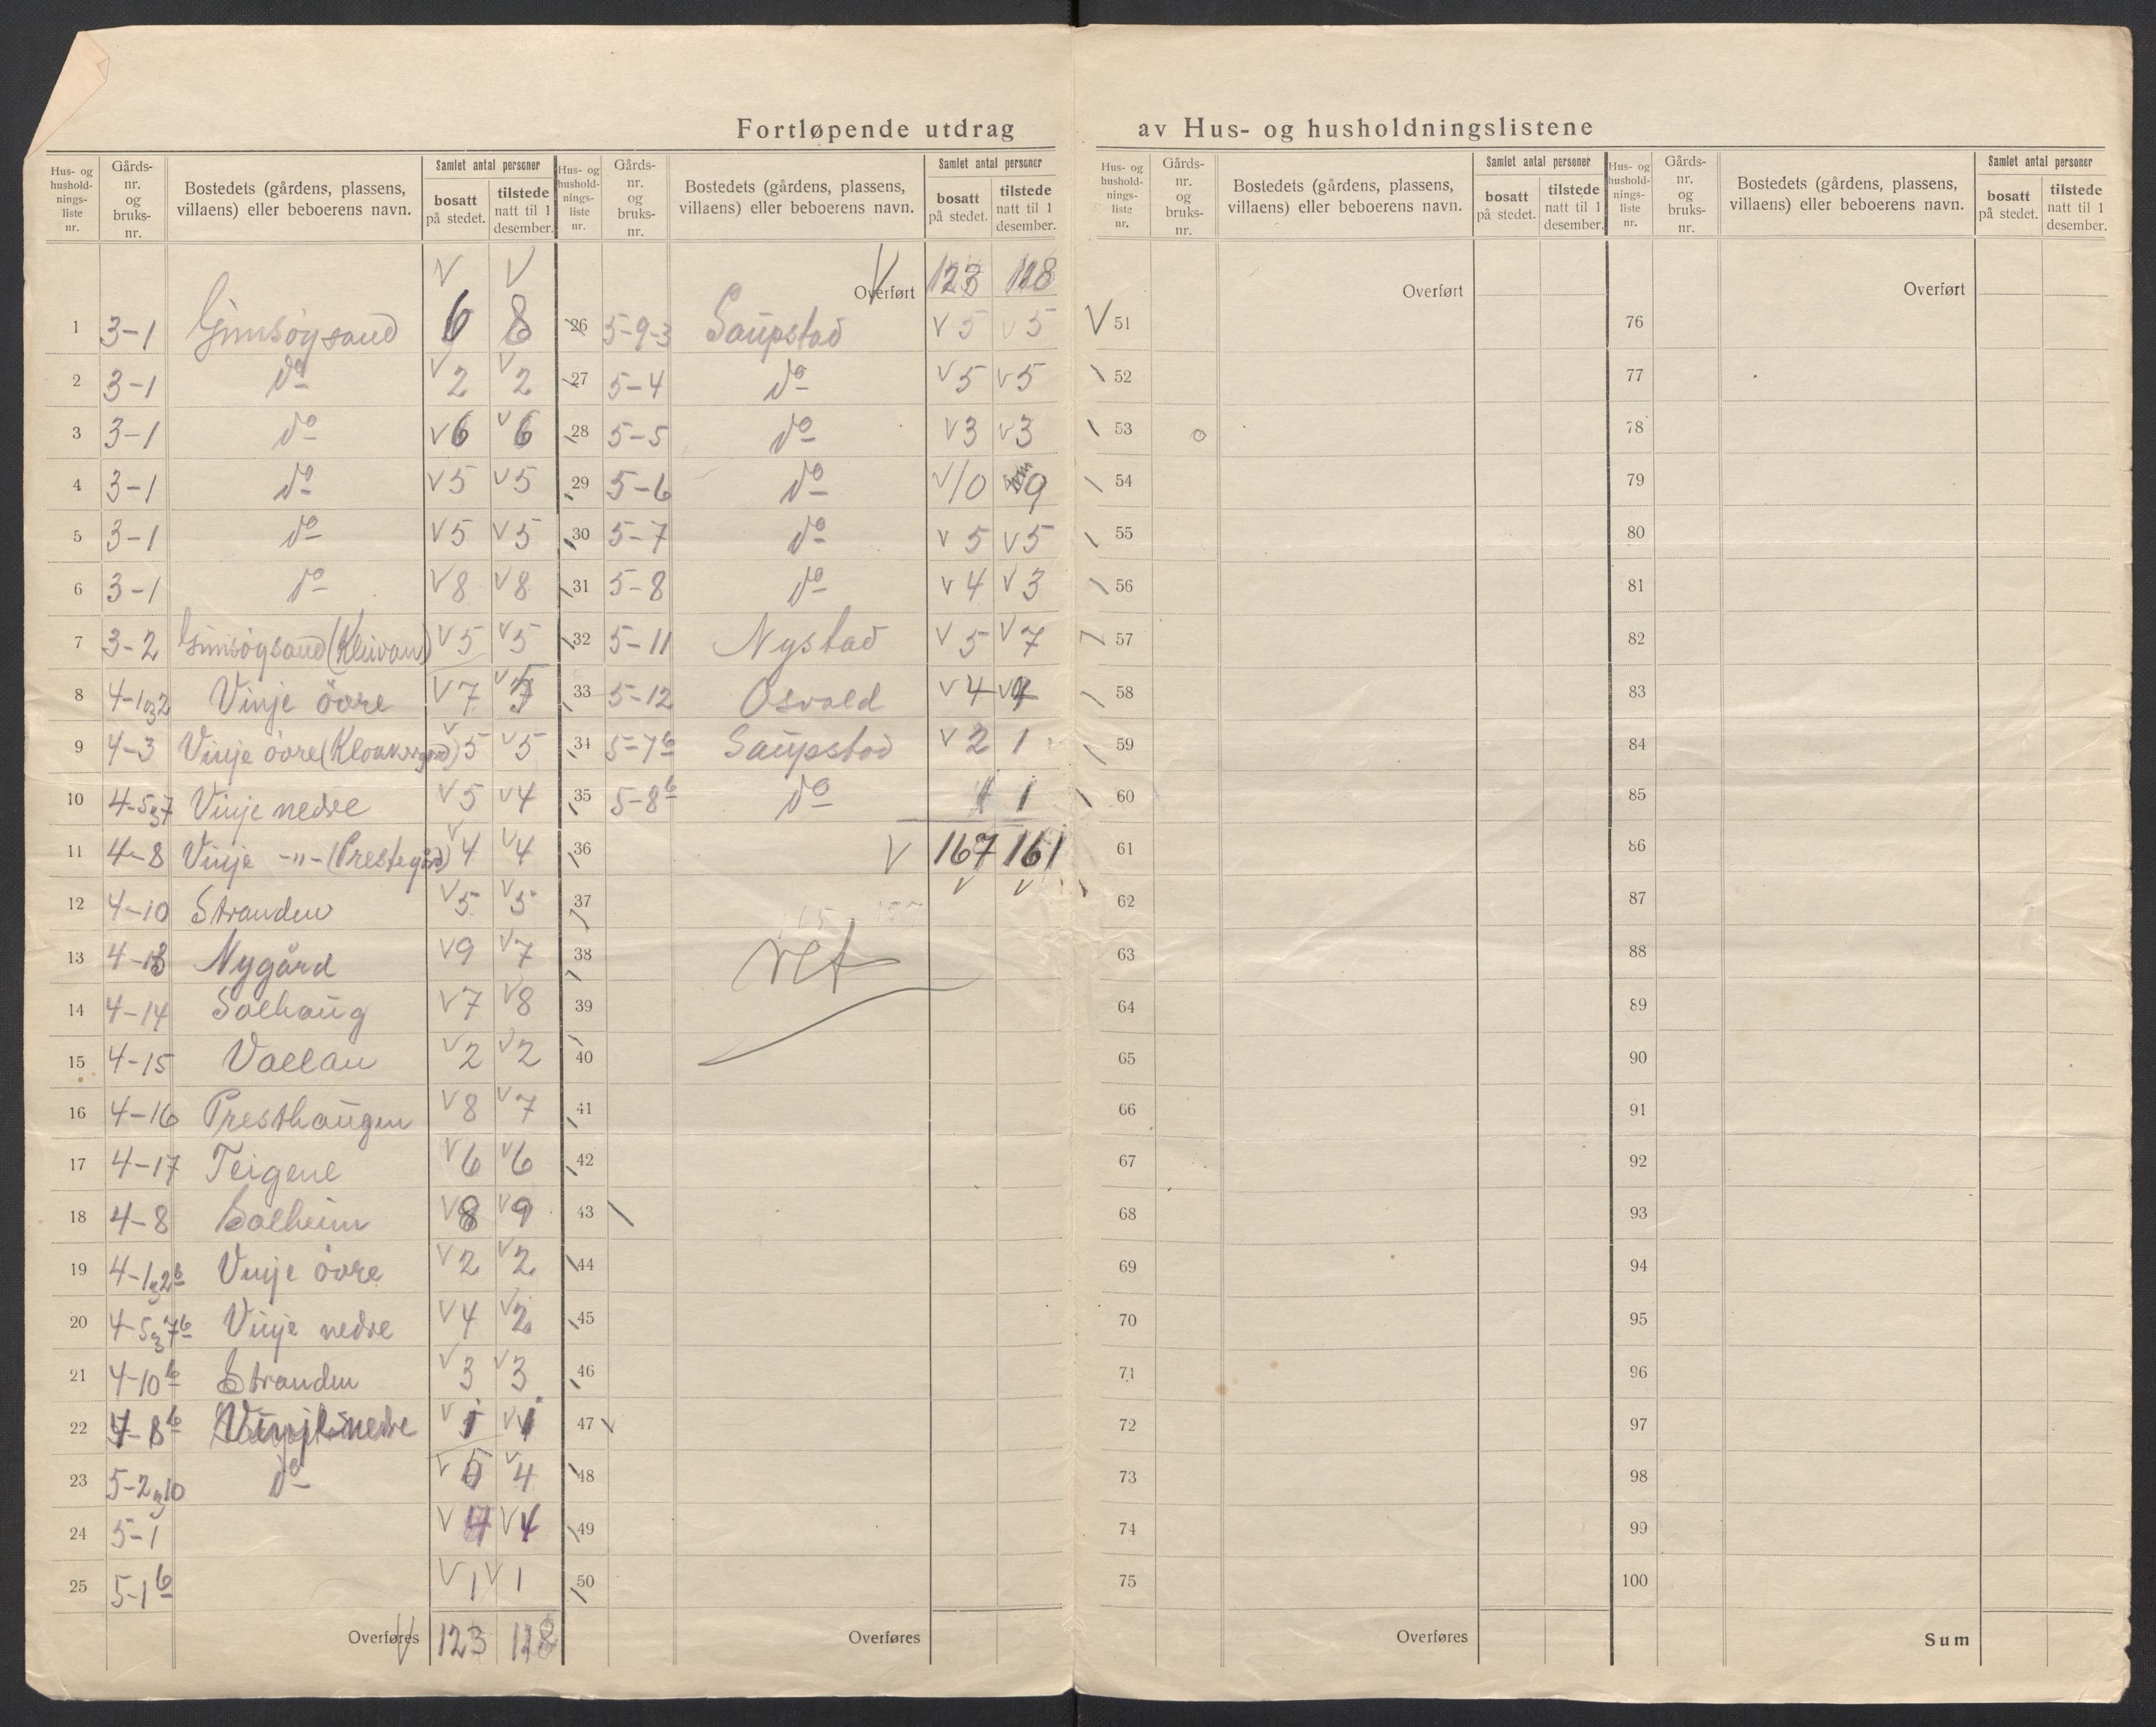 Fortløpende utdrag av Hus- og husholdningslistene
Hus- og husholdningsliste nr. | Gårds-nr. og bruks-nr. | Bostedets (gårdens, plassens, villaens) eller beboerens navn. | Samlet antal personer | bosatt på stedet. | tilstede natt til 1 desember.
V V
1 3-1 Gimsøysand 6 8
2 3-1 do V 2 V 2
3 3-1 do V 6 V 6
4 3-1 do V 5 V 5
5 3-1 do V 5 V 5
6 3-1 do V 8 V 8
7 3-2 Gimsøysand (Kleivan) V 5 V 5
8 4-1og2 Vinje övre V 7 V
9 4-3 Vinje övre (Klokkergård) V 5 V 5
10 4-5og7 Vinje nedre V 5 V 4
11 4-8 Vinje -"- (Prestegård) V 4 V 4
12 4-10 Stranden V 5 V 5
13 4-13 Nygård V 9 V 7
14 4-14 Solhaug V 7 V 8
15 4-15 Vollan V 2 V 2
16 4-16 Presthaugen V 8 V 7
17 4-17 Teigene V 6 V 6
18 4-8 Solheim V 8 V 9
19 4-1og2b Vinje övre V 2 V 2
20 4-5og7b Vinje nedre V 4 V 2
21 4-10b Stranden V 3 V 3
22 4-8b Vinje nedre V 1 V 1
23 5-2og10 do V 5 V 4
24 5-1 V 4 V 4
25 5-1b V 1 V 1
Overføres V 123 118
Hus- og husholdningsliste nr. | Gårds-nr. og bruks-nr. | Bostedets (gårdens, plassens, villaens) eller beboerens navn. | Samlet antal personer | bosatt på stedet. | tilstede natt til 1 desember.
Overført V 123 118
26 5-9-3 Saupstad V 5 V 5
27 5-4 do V 5 V 5
28 5-5 do V 3 V 3
29 5-6 do V 10 9
30 5-7 do V 5 V 5
31 5-8 do V 4 V 3
32 5-11 Nystad V 5 V 7
33 5-12 Osvold V 4 V 4
34 5-7b Saupstad V 2 1
35 5-8b do 1 1
36 V 167 161
V V
37
38 ret
39
40
41
42
43
44
45
46
47
48
49
50
Overføres
Hus- og husholdningsliste nr. | Gårds-nr. og bruks-nr. | Bostedets (gårdens, plassens, villaens) eller beboerens navn. | Samlet antal personer | bosatt på stedet. | tilstede natt til 1 desember.
Overført
V 51
52
53
54
55
56
57
58
59
60
61
62
63
64
65
66
67
68
69
70
71
72
73
74
75
Overføres
Hus- og husholdningsliste nr. | Gårds-nr. og bruks-nr. | Bostedets (gårdens, plassens, villaens) eller beboerens navn. | Samlet antal personer | bosatt på stedet. | tilstede natt til 1 desember.
Overført
76
77
78
79
80
81
82
83
84
85
86
87
88
89
90
91
92
93
94
95
96
97
98
99
100
Sum